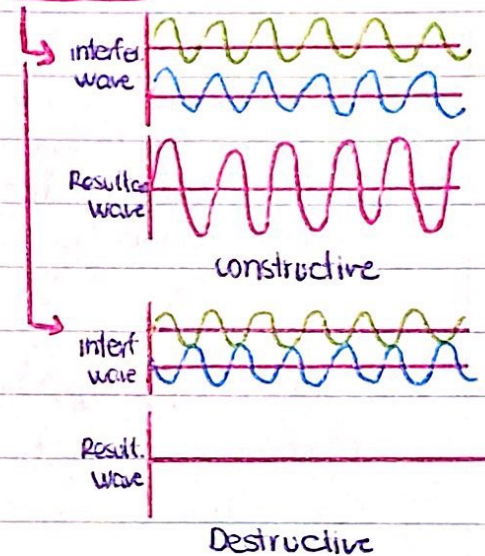 interfe.
wave
Resultce
wave
constructive
interf
wave
Result.
wave
Destructive